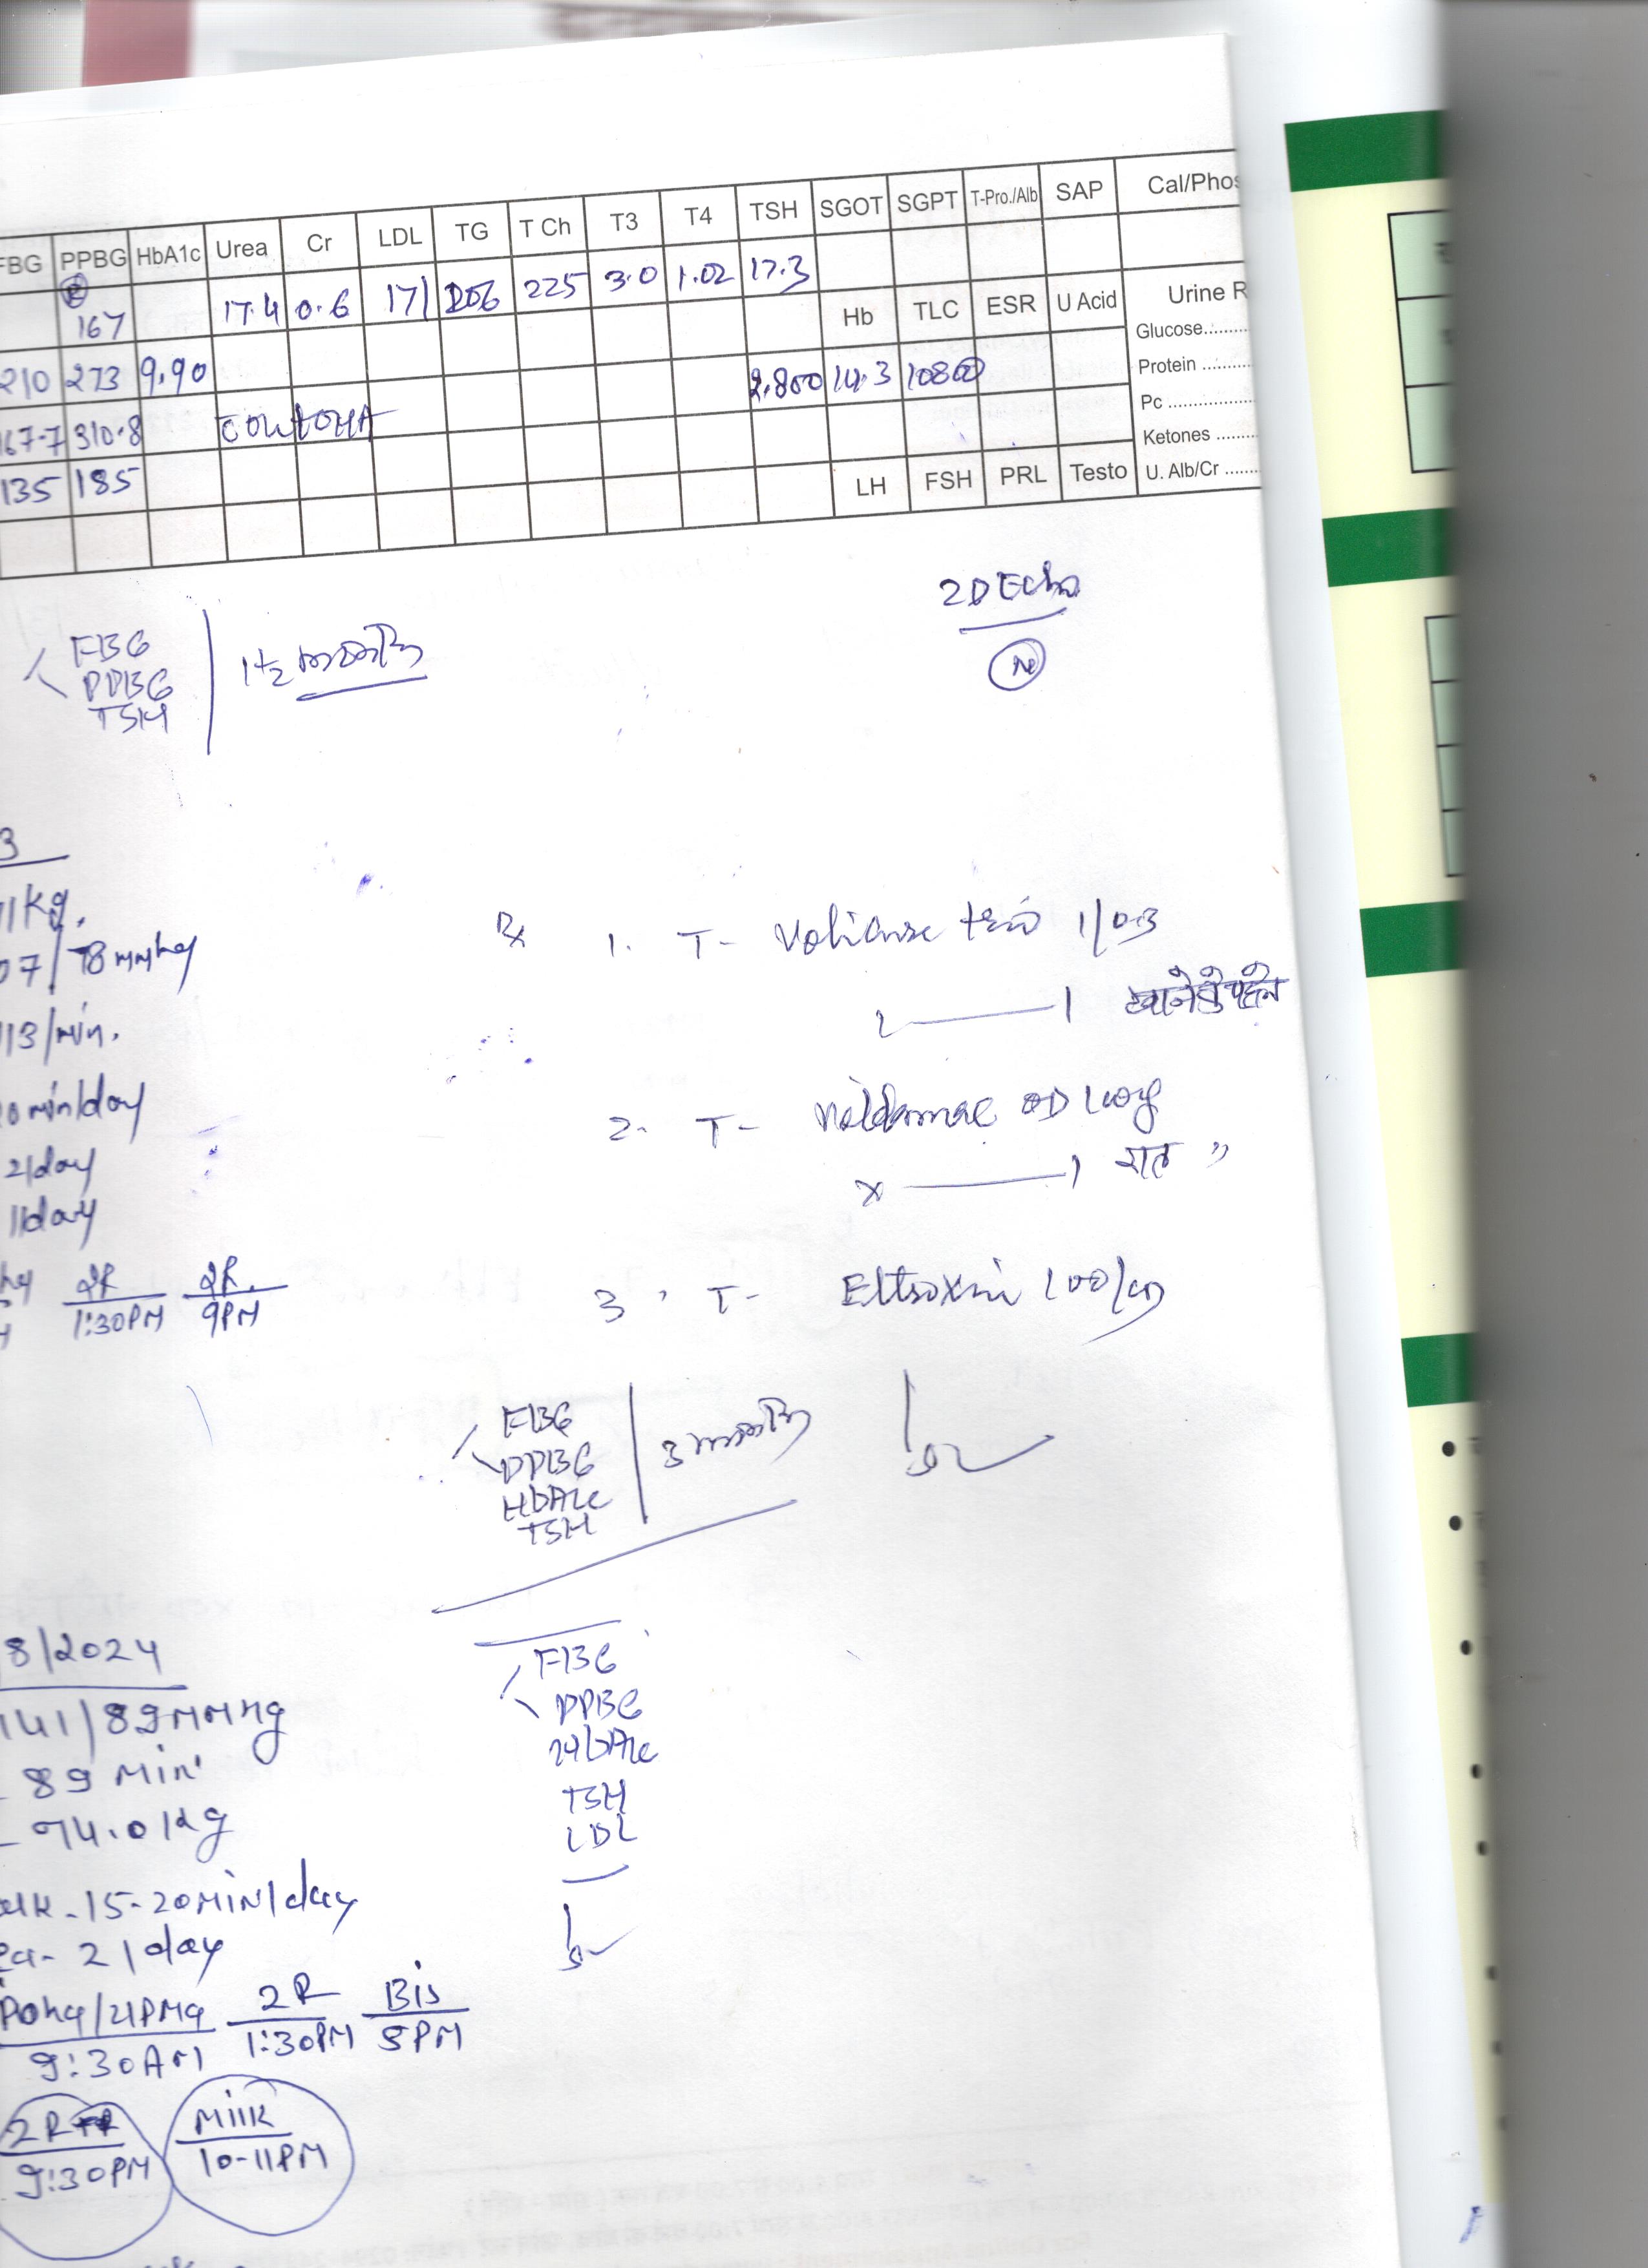 FBG PPBG HbA1c Urea Cr LDL TG T Ch T3 T4 TSH SGOT SGPT T-Pro./Alb SAP Cal/Phos
167 17.4 0.6 171 206 225 3.0 1.02 17.3
Hb TLC ESR U Acid Urine R
Glucose........
210 273 9.90 2.800 14.3 10800
Protein ..........
167.7 310.8
Pc ................
Ketones ........
135 185
LH FSH PRL Testo U. Alb/Cr .......
2D Echo
N
FBG
PPBG
TSH
1½ month
3
1 kg.
07/78 mmhg
113/min.
0 min/day
2/day
1/day
2R 2R.
1:30PM 9PM
Rx 1. T- Voliance trio 1/0.3
1
2. T- OD
x 1 रात "
3. T- Eltroxin 100
FBG
PPBG
HbA1c
TSH
3 month
8/2024
141/89 MMHg
- 89 Min'
- 74.0 kg
- 15-20 MIN/day
- 2/day
Poha/UPMa 2R Bis
9:30AM 1:30PM 5PM
2R Milk
9:30PM 10-11PM
FBG
PPBG
HbA1c
TSH
LDL